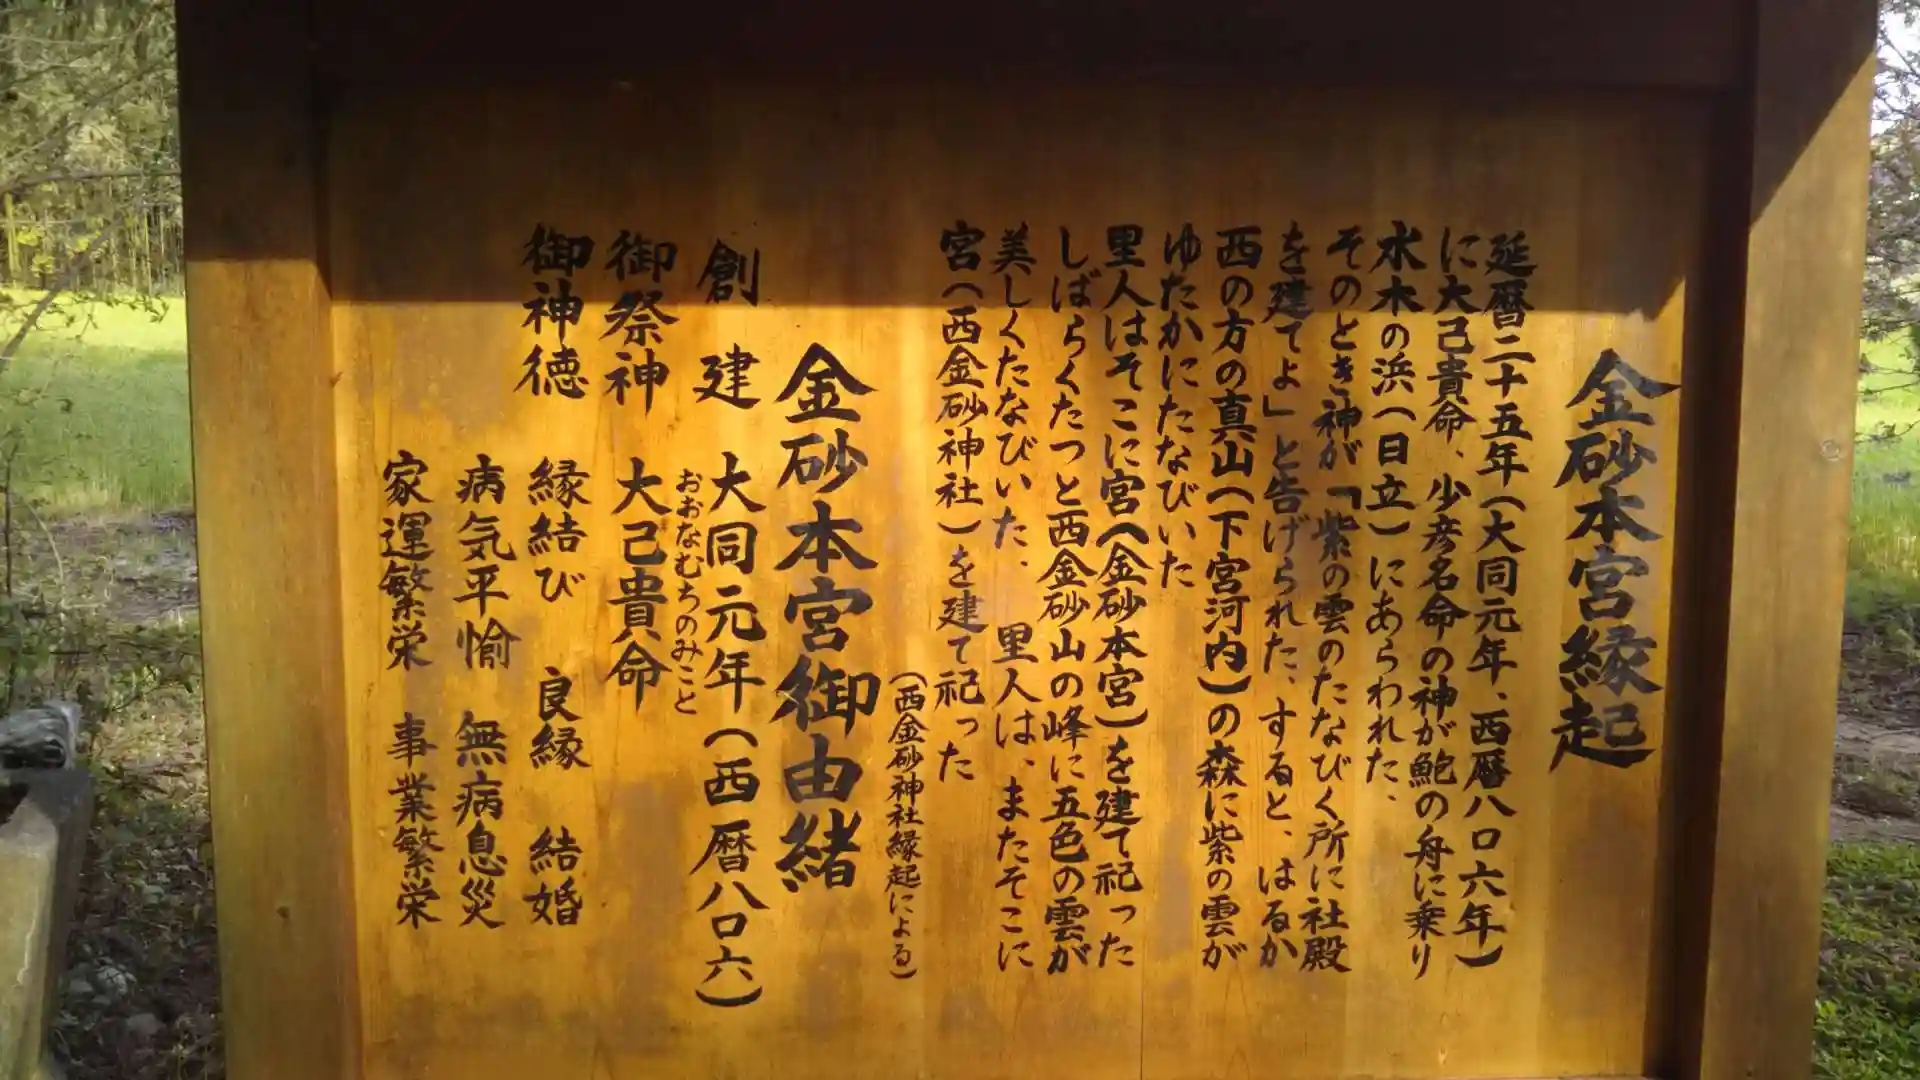 金砂本宮縁起
延暦二十五年(大同元年、西暦八〇六年)
に大己貴命、少彦名命の神が鮑の舟に乗り
水木の浜(日立)にあらわれた、
そのとき神が「紫の雲のたなびく所に社殿
を建てよ」と告げられた、すると、はるか
西の方の真山(下宮河内)の森に紫の雲が
ゆたかにたなびいた
里人はそこに宮(金砂本宮)を建て祀った
しばらくたつと西金砂山の峰に五色の雲が
美しくたなびいた、里人は、またそこに
宮(西金砂神社)を建て祀った
(西金砂神社縁起による)
金砂本宮御由緒
創建 大同元年(西暦八〇六)
おおなむちのみこと
御祭神 大己貴命
御神徳 縁結び 良縁 結婚
病気平愉 無病息災
家運繁栄 事業繁栄